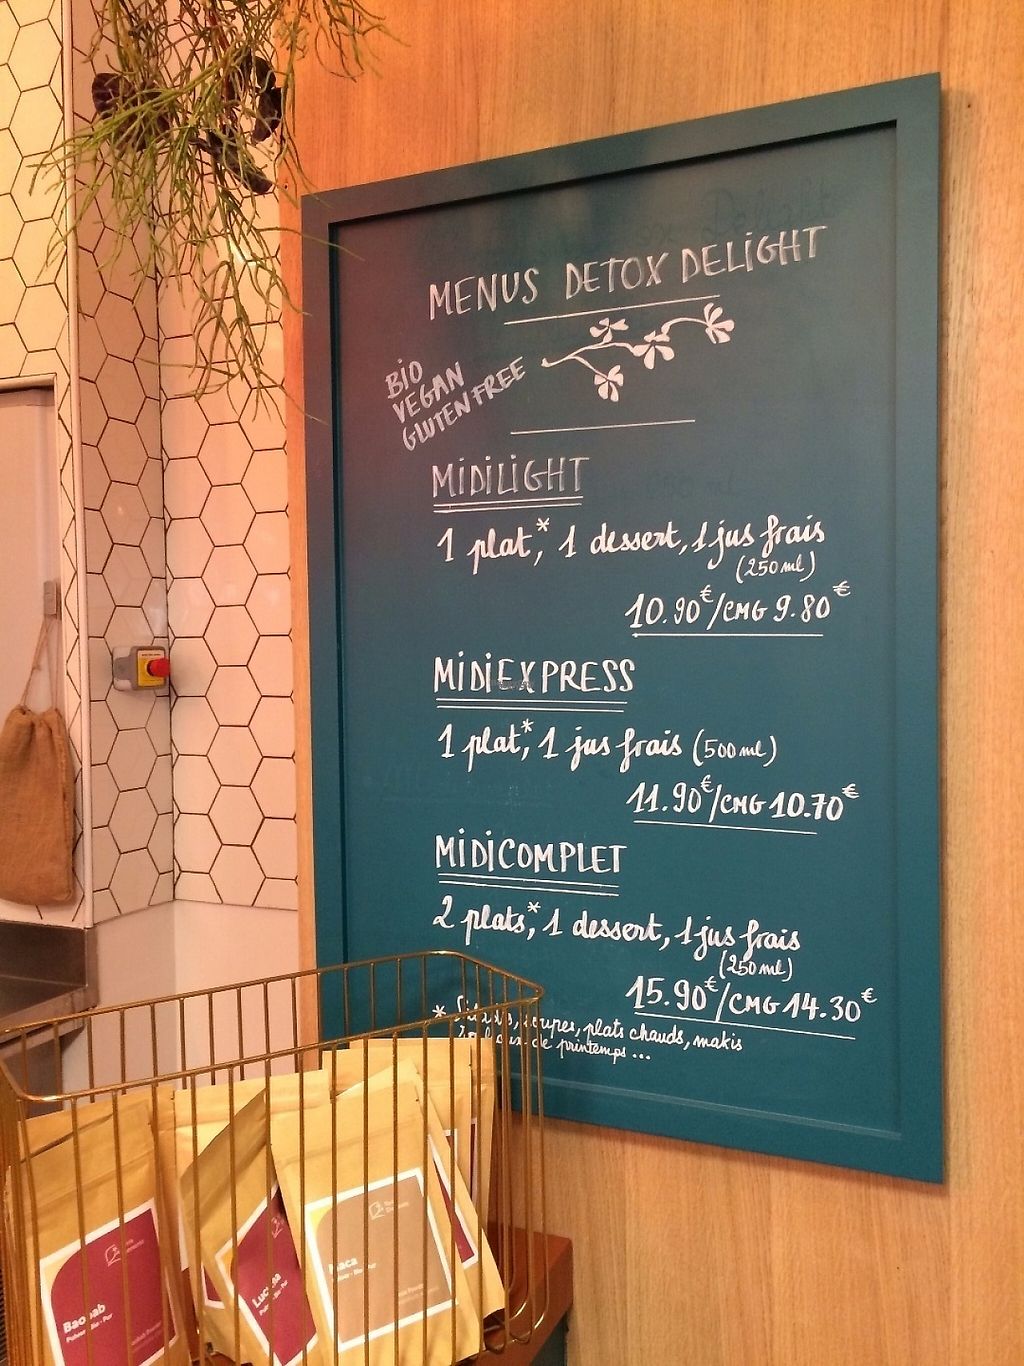 MENUS DETOX DELiGHT
BiO
VEGAN
GLUTEN FREE
MiDiLiGHT
1 plat,* 1 dessert, 1 jus frais
(250 ml)
10.90€/CMG 9.80€
MiDiEXPRESS
1 plat,* 1 jus frais (500 ml)
11.90€/CMG 10.70€
MiDiCOMPLET
2 plats,* 1 dessert, 1 jus frais
(250 ml)
15.90€/CMG 14.30€
* soupes, plats chauds, makis
de printemps ...
Baobab
Lucuma
Maca